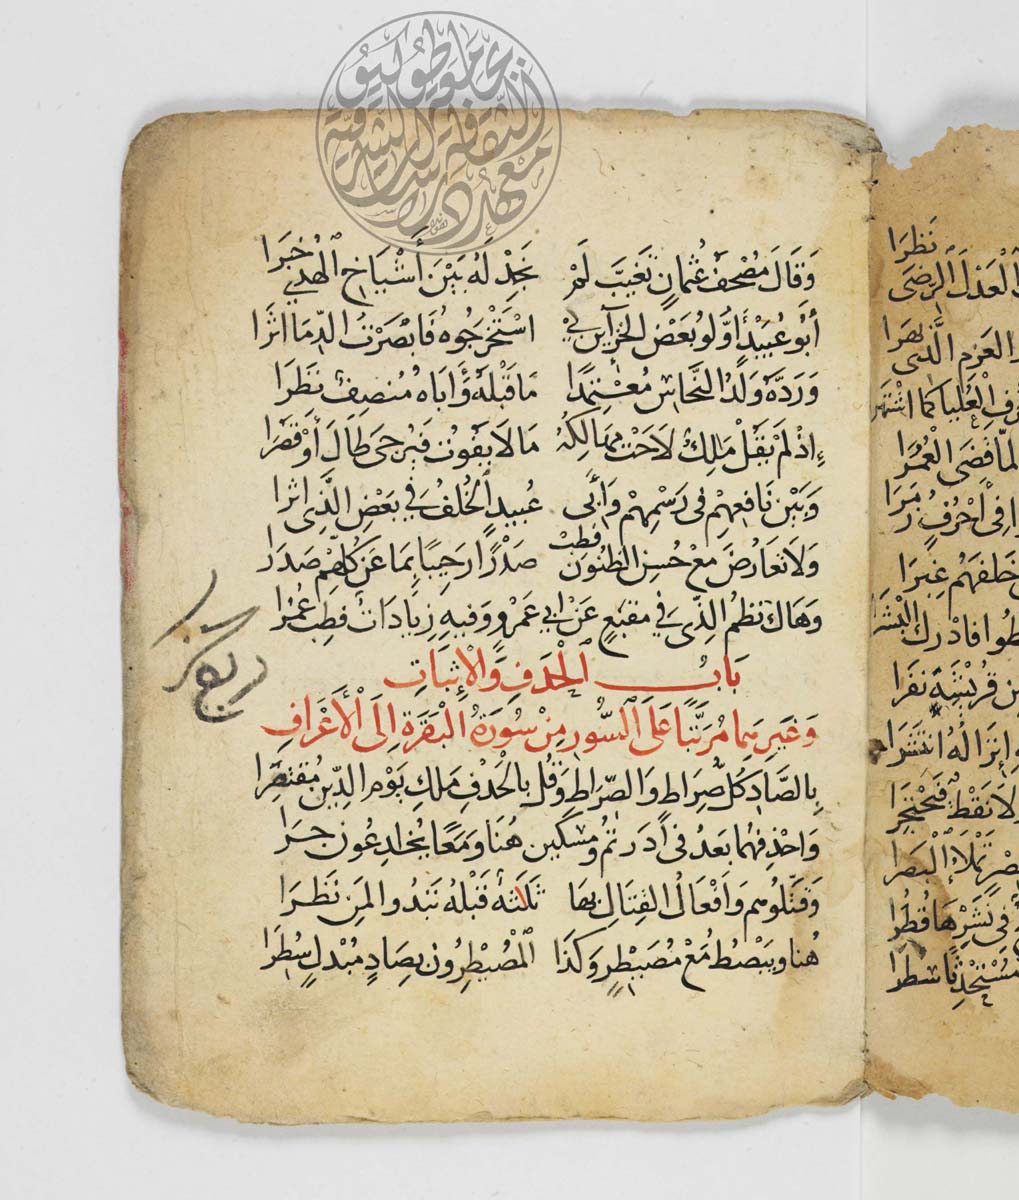 معهد الثقافة والدراسات الشرقية جامعة طوكيو
وَقَالَ مُصْحَفُ عُثْمَانٍ تَغَيَّبَ لَمْ نَجِدْ لَهُ بَيْنَ أَشْيَاخِ الْهُدَى خَبَرَا
أَبُو عُبَيْدٍ أُولُو بَعْضِ الخَزَآينِ لِي اسْتَخْرَجُوهُ فَابْصَرْتُ الدِّمَا اثَرَا
وَرَدَّهُ وَلَدُ النَّحَّاسِ مُعْتَمِدًا مَا قَبْلَهُ وَأَبَاهُ مُنْصِفٌ نَظَرَا
إِذْ لَمْ يَقُلْ مَالِكٌ لَاحَتْ مَهَالِكُهُ مَا لَا يَفُوتُ فَيُرْجَى طَالَ أَوْ قَصُرَا
وَبَيْنَ نَافِعِهِمْ فِي رَسْمِهِمْ وَأَبِي عُبَيدٍ الْخُلْفُ فِي بَعْضِ الَّذِي اثَرَا
وَلَا تَعَارُضَ مَعْ حُسْنِ الظُّنُونِ فَطِبْ صَدْرًا رَحِيبًا بِمَا عَنْ كُلِّهِمْ صَدَرَا
وَهَاكَ نَظْمَ الَّذِي فِي مقنِعٍ عَنْ أبِي عَمْرٍو وَفِيهِ زِيَادَاتٌ فَطِبْ عُمُرَا
بَابُ الْحَذفِ وَالْإِثبَاتِ
وَغَيرِهِمَا مُرَتَّبًا عَلَى السُّوَرِ مِنْ سُورَةِ البَقَرَةِ إلَى الْأَعْرَافِ
بِالصَّادِ كُلُّ صِرَاطٍ وَالصِّرَاطِ وَقُل بِالْحَذْفِ مَلِكِ يَوْمِ الدِّينِ مُقْتَصِرَا
وَاحْذِفْهُمَا بَعْدُ فِى ادَّرَءتُمُ ومَسكِينَ هُنَا وَمَعًا يُخَادِعُونَ جَرَا
وَقَتِّلُوهُم وَافْعَالُ القِتَالِ بِهَا ثَلَاثَة قَبْلَهُ تَبدُو المَن نَظَرَا
هُنا ويَبْصُطُ مَعْ مُصَيْطِرٍ وَكَذَا المُصَيْطِرُونَ بِصَادٍ مُبْدَلٍ سُطِرَا
نَظَرَا
الْعَدْلَ الرِّضَى
العَزمِ الَّذِى بَهرَا
الْعُليَا كمَا اشْتَهَرَ
لمّا قَضَى الْعُمُرَا
فِى احْرُفٍ زمَرَا
خَلفَهُم غيَرَا
فادرَك البَشَرَا
من قُرَيْشِهِ نَفَرَا
لَهُ انتَشَرَا
وَلَا نَقْطٌ فَيَحْتَجِرَا
تَمْلَأ الْبَصَرَا
فى نَشْرِهَا قُطُرَا
مُسْتَحْدِثًا سُطرا